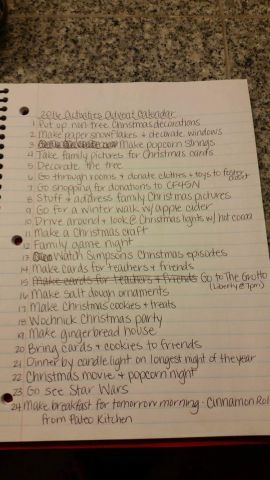 2016 Activities Advent Calendar
1. Put up non-tree Christmas decorations
2. Make paper snowflakes + decorate windows
3. Make popcorn strings
4. Take family pictures for Christmas cards
5. Decorate the tree
6. Go through rooms + donate clothes + toys to foster
7. Go shopping for donations to CF45N
8. Stuff + address family Christmas pictures
9. Go for a winter walk w/ apple cider
10. Drive around + look @ Christmas lights w/ hot cocoa
11. Make a Christmas craft
12. Family game night
13. Watch Simpsons Christmas episodes
14. Make cards for teachers + friends
15. Make cards for teachers + friends Go to The Grotto
(Liberty @ 7pm)
16. Make salt dough ornaments
17. Make Christmas cookies + treats
18. Wochnick Christmas party
19. Make gingerbread house
20. Bring cards + cookies to friends
21. Dinner by candle light on longest night of the year
22. Christmas movie + popcorn night
23. Go see Star Wars
24. Make breakfast for tomorrow morning - Cinnamon Rol
from Paleo Kitchen